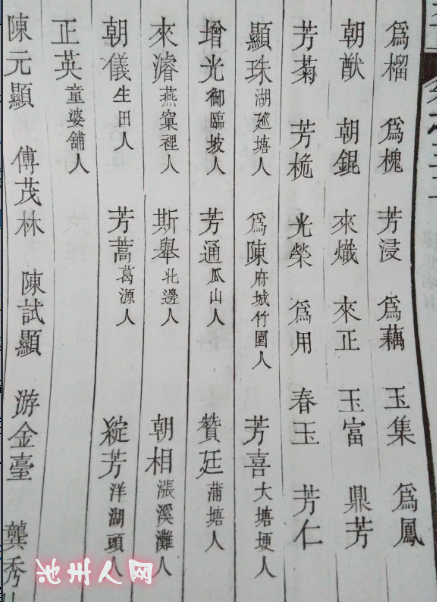 爲榴 爲槐 芳浸 爲藕 玉集 爲鳳
朝猷 朝錕 來熾 來正 玉富 鼎芳
芳菊 芳桅 光榮 爲用 春玉 芳仁
顯珠湖𨓦塘人 爲陳府城竹圍人 芳喜大塘埂人
增光御臨坡人 芳通瓜山人 贊廷蒲塘人
來濬燕窠裡人 斯舉北邊人 朝相漲溪灘人
朝儀生田人 芳蒿葛源人 綻芳洋湖頭人
正英童婆舖人
陳元顯 傅茂林 陳試顯 游金臺 龔秀
池州人网